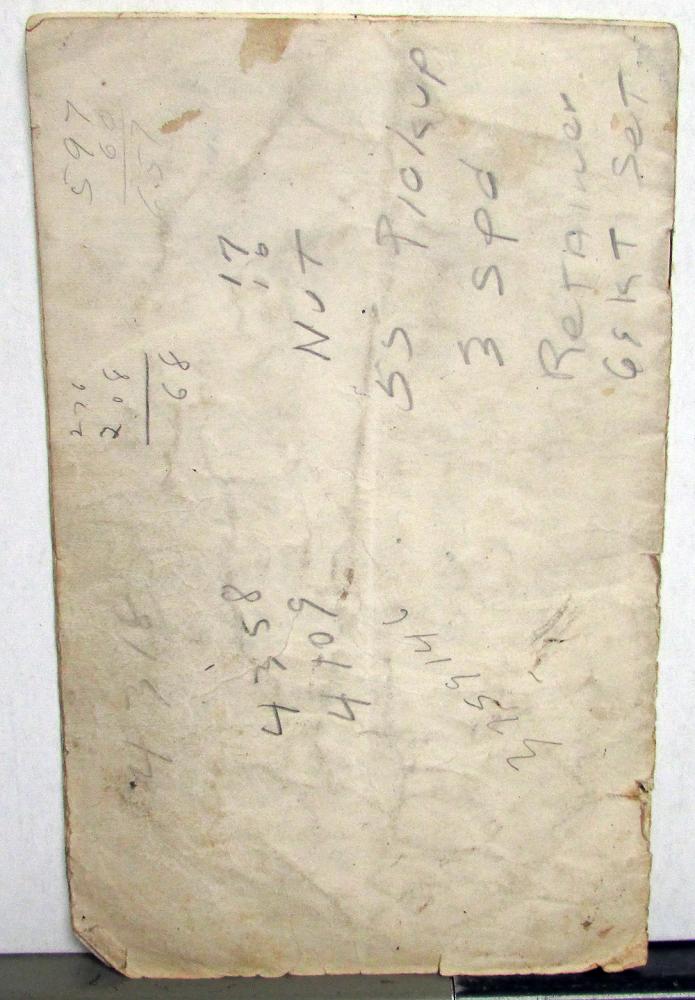 597
60
657
276
208
68
4318
17
16
4358
NUT
4709
55 PICKUP
3 SPd
RETAINER
GSKT SET